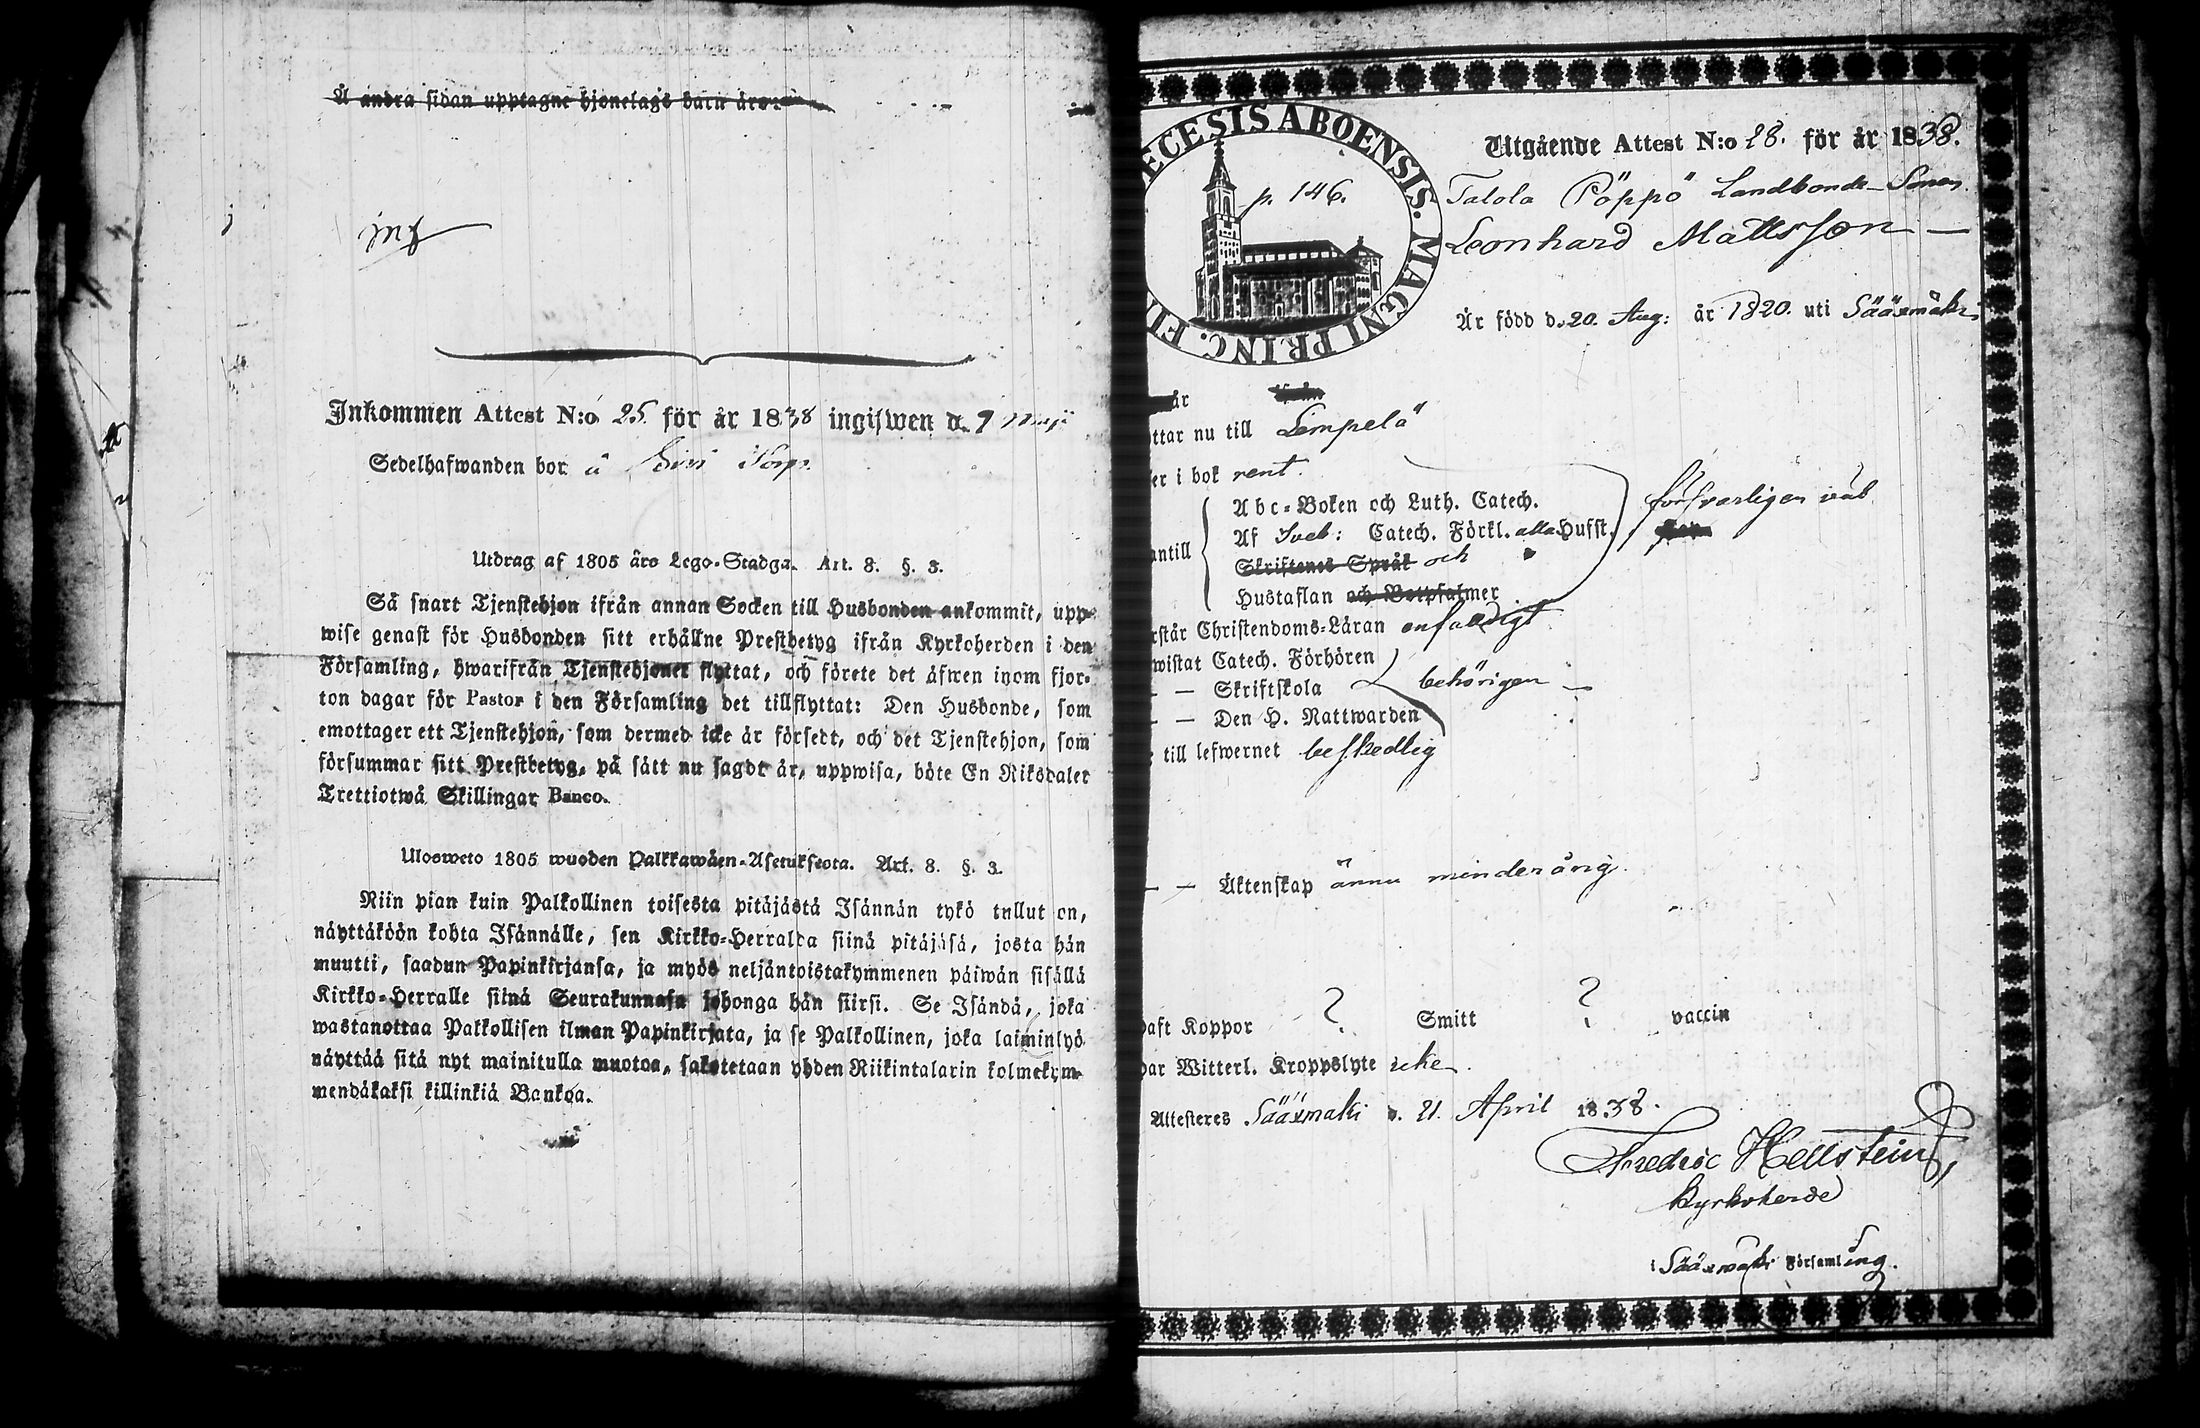 Å andra sidan upptagne hjonelags barn äro:
Inkommen Attest N:o 25. för år 1838 ingifwen d. 7 Maji
Sedelhafwanden bor å
Utdrag af 1805 års Lego-Stadga. Art. 8. §. 3.
Så snart Tjenstehjon ifrån annan Socken till Husbonden ankommit, upp-
wise genast för Husbonden sitt erhållne Prestbetyg ifrån Kyrkoherden i den
Församling, hwarifrån Tjenstehjonet flyttat, och förete det äfwen inom fjor-
ton dagar för Pastor i den Församling det tillflyttat: Den Husbonde, som
emottager ett Tjenstehjon, som dermed icke är försedt, och det Tjenstehjon, som
försummar sitt Prestbetyg, på sätt nu sagdt är, uppwisa, böte En Riksdaler
Trettiotwå Skillingar Banco.
Ulosweto 1805 wuoden Palkkawäen-Asetuksesta. Art. 8. §. 3.
Niin pian kuin Palkollinen toisesta pitäjästä Isännän tykö tullut on,
näyttäköön kohta Isännälle, sen Kirkko-Herralda siinä pitäjäsä, josta hän
muutti, saadun Papinkirjansa, ja myös neljäntoistakymmenen päiwän sisällä
Kirkko-Herralle siinä Seurakunnasa johonga hän siirsi. Se Isändä, joka
wastanottaa Palkollisen ilman Papinkirjata, ja se Palkollinen, joka laiminlyö
näyttää sitä nyt mainitulla muotoa, sakotetaan yhden Riikintalarin kolmekym-
mendäkaksi killinkiä Bankoa.
ECESIS ABOENSIS. MAGNI PRINC. FI
p. 146.
Utgående Attest N:o 28. för år 1838.
Talola Pöppö Landbonde-Sonen
Leonhard Mattsson —
Är född d. 20. Aug: år 1820. uti Sääxmäki
är
ttar nu till Lempelä
er i bok rent.
Abc-Boken och Luth. Catech.
Af Sveb: Catech. Förkl. alla Hufst.
försvarligen
antill
Skriftenes Språk och
Hustaflan och Botpsalmer
rstår Christendoms-Läran enfaldigt
wistat Catech. Förhören
— — Skriftskola behörigen —
— — Den H. Nattwarden
till lefwernet beskedlig
— — Äktenskap ännu minderårig.
haft Koppor ? Smitt ? vaccin
har Witterl. Kroppslyte icke.
Attesteres Sääxmäki d. 21. April 1838.
Fredric Hellstein,
Kyrkoherde
i Sääxmäki Församling.